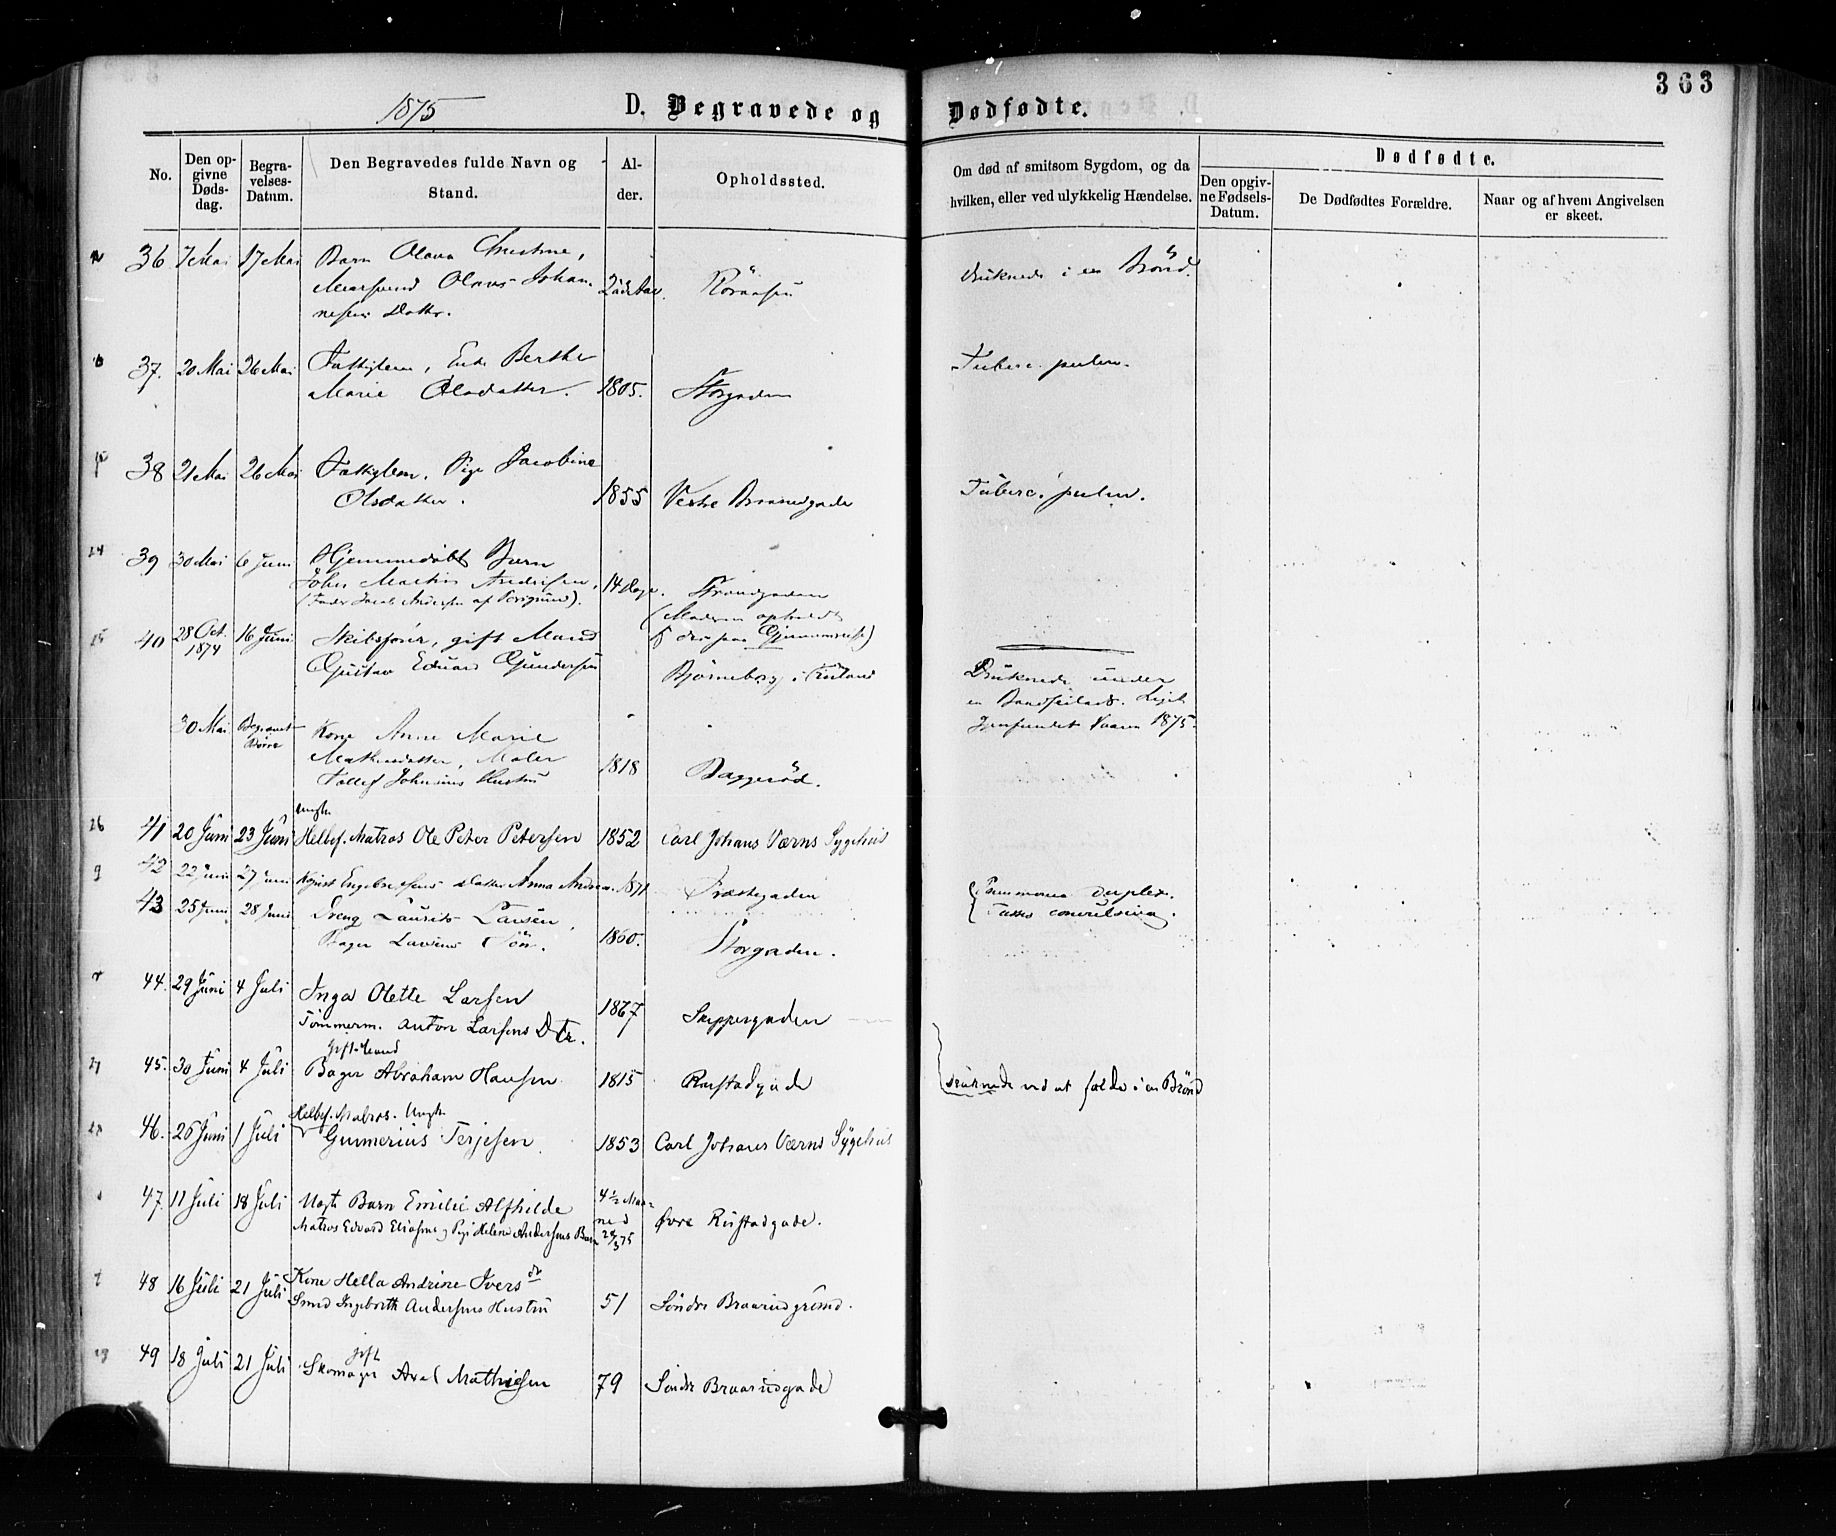 363
1875 D. Begravede og Dødfødte.
No.
Den opgivne Dødsdag.
Begravelses-Datum.
Den Begravedes fulde Navn og Stand.
Alder.
Opholdssted.
Om død af smitsom Sygdom, og da hvilken, eller ved ulykkelig Hændelse.
Dødfødte.
Den opgivne Fødsels-Datum.
De Dødfødtes Forældre.
Naar og af hvem Angivelsen er skeet.
36 7 Mai 17 Mai Barn Olava Christine,
Olaus Johan-
nesens Datter.
druknede i en Brønd.
37. 20 Mai 26 Mai Fattiglem, Enke Berthe
Marie Olsdatter. 1805. Storgaden
Tuberc. pulm.
38 21 Mai 26 Mai Fattiglem, Pige Jacobine
Olsdatter. 1855 Vestre Braarudgade
Tuberc. pulm.
39 30 Mai 6 Juni Hjemmedøbt Barn
John Martin Andersen, 14 Dage. Strandgaden
(Fader Jacob Andersen af Porsgrund).
(Moderen opholdt
sig her paa Gjennemreise)
40 28 Oct. 1874 16 Juni Skibsfører, gift Mand
Gustav Eduard Gundersen Bjørneborg i Finland
Druknede under
en Baadseilads. Liget
gjenfundet Vaaren 1875.
30 Mai Begravet Borre Kone Anne Marie
Mathisdatter, Maler
Tollef Johnsens Hustru 1818 Baggerød.
Ungk.
41 20 Juni 23 Juni Helbef. Matros Ole Peter Petersen 1852 Carl Johans Værns Sygehus
42 22 Juni 27 Juni Engebretsens Datter Anna Andrea. 1871
duplex.
Tussis convulsiva.
43 25 Juni 28 Juni Dreng Laurits Larsen,
Bager Larsens Søn. 1860. Storgaden.
44. 29 Juni 4 Juli Inga Olette Larsen
Tømmerm. Anton Larsens Dtr. 1867 Skippergaden
gift Mand
45. 30 Juni 4 Juli Bager Abraham Hansen 1815 Rustadgade
druknede ved at falde i en Brønd
Helbef. Matros. Ungk.
46. 26 Juni 1 Juli Gunnerius Terjesen 1853 Carl Johans Værns Sygehus
47. 11 Juli 18 Juli Uægte Barn Emilie Alfhilde 4½ Maa-
ned
Matros Edvard Eliasens og Pige Helene Andersens Barn 24/3 75 Øvre Rustadgade.
48 16 Juli 21 Juli Kone Hella Andrine Iversdr
Smed Ingebreth Andersens Hustru 51 Søndre Braarudgrund.
gift
49 18 Juli 21 Juli Skomager Axel Mathisen 79 Søndre Braarudgade